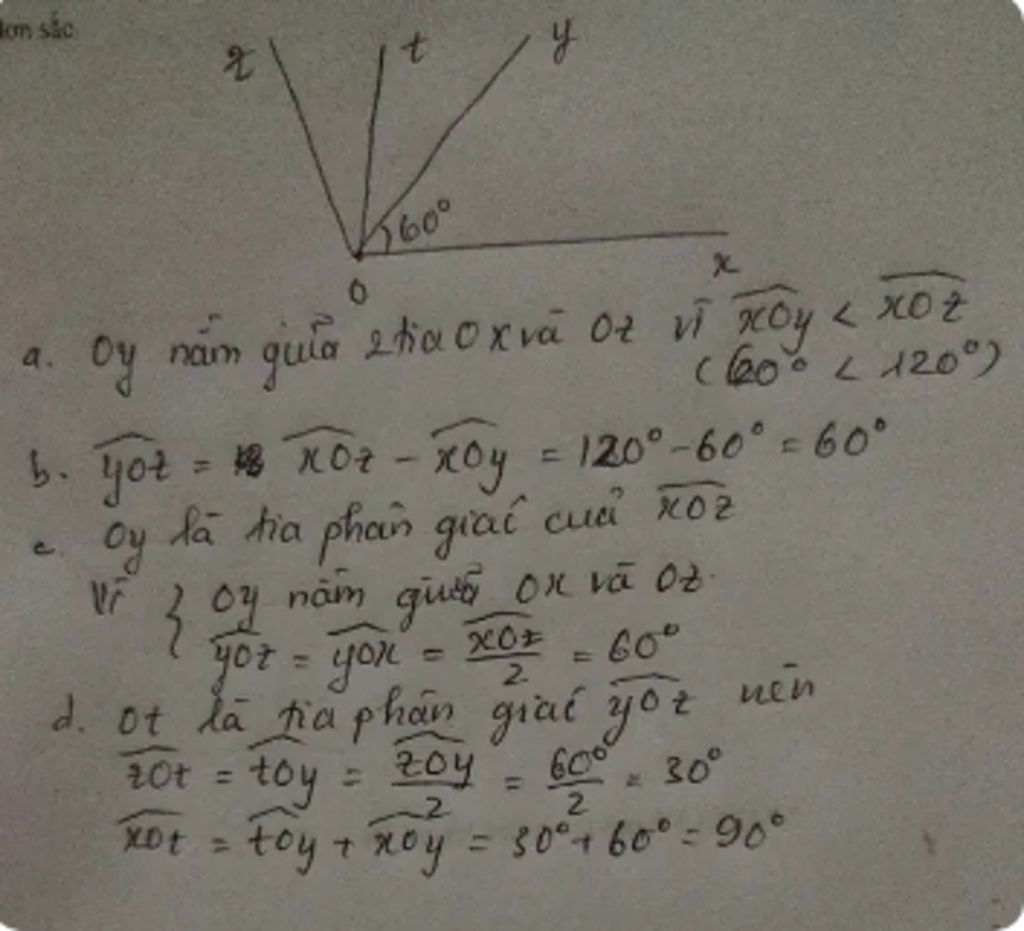 đơn sắc
z t y
60°
O x
a. Oy nằm giữa 2 tia Ox và Oz vì xOy < xOz
(60° < 120°)
b. yOz = xOz - xOy = 120° - 60° = 60°
c. Oy là tia phân giác của xOz
Vì { Oy nằm giữa Ox và Oz.
yOz = yOx = xOz/2 = 60°
d. Ot là tia phân giác yOz nên
zOt = tOy = zOy/2 = 60°/2 = 30°
xOt = tOy + xOy = 30° + 60° = 90°